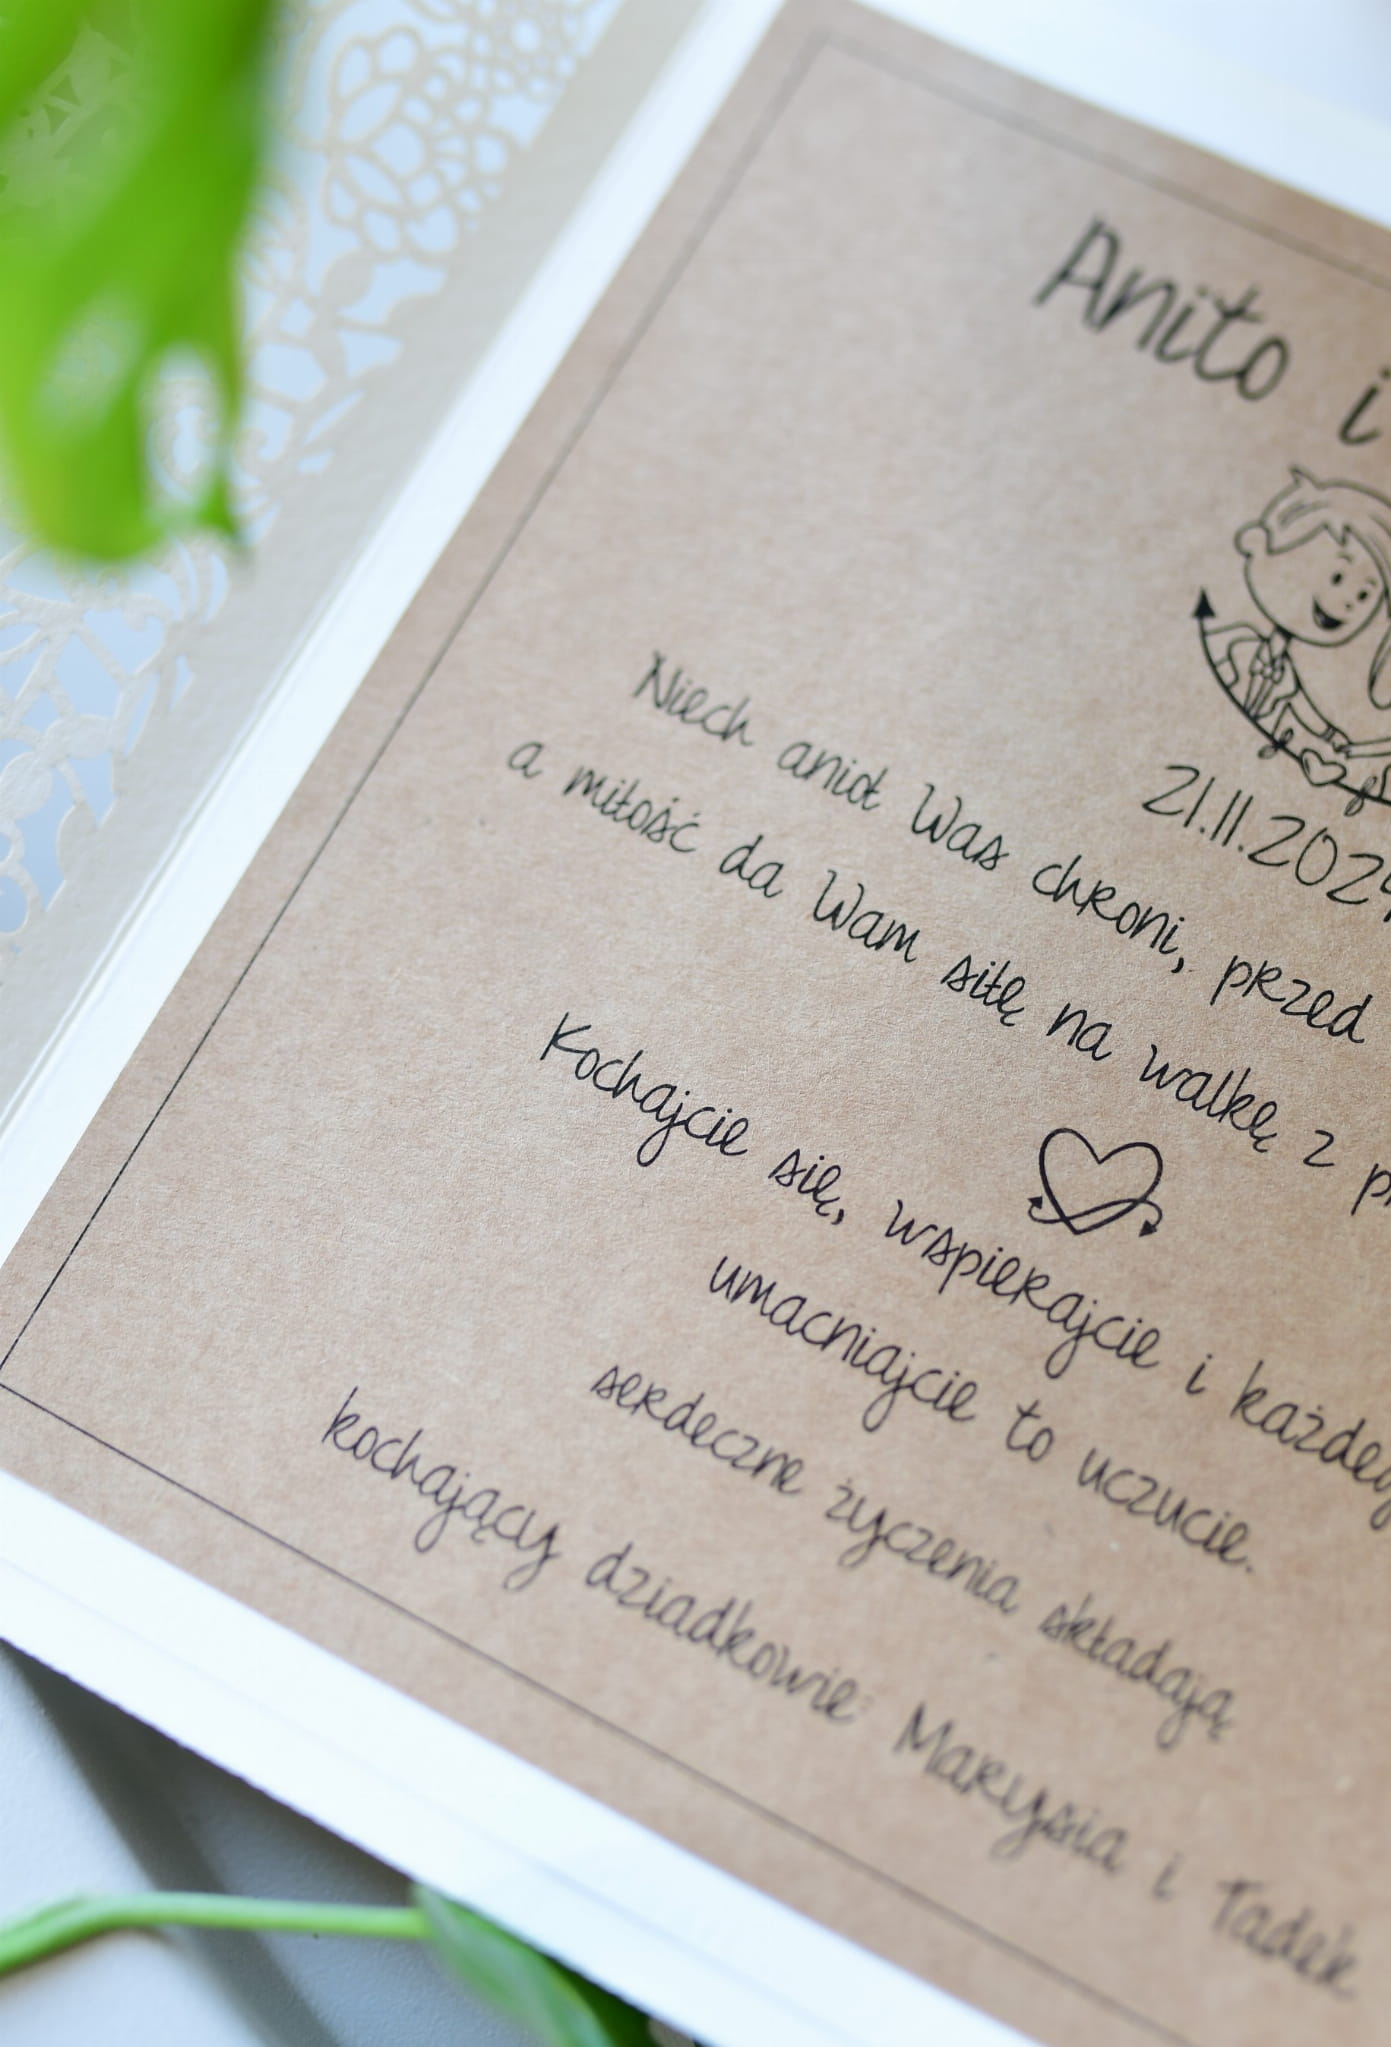 Anito i
21.11.2024
Niech anioł Was chroni, przed
a miłość da Wam siłę na walkę z
Kochajcie się, wspierajcie i każdego
umacniajcie to uczucie.
serdeczne życzenia składają
kochający dziadkowie: Marysia i Tadek